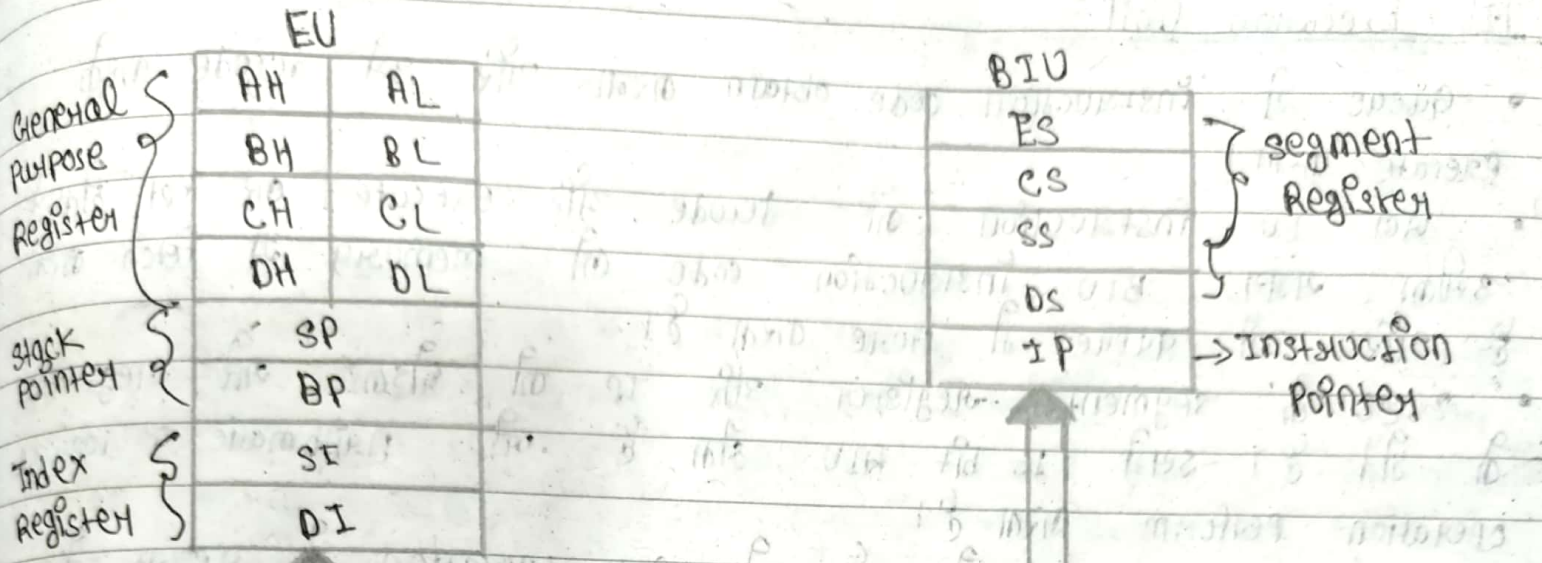 EU
General
Purpose
Register
AH AL
BH BL
CH CL
DH DL
Stack
Pointer
SP
BP
Index
Register
SI
DI
BIU
ES
CS
SS
DS
IP
Segment
Register
Instruction
Pointer